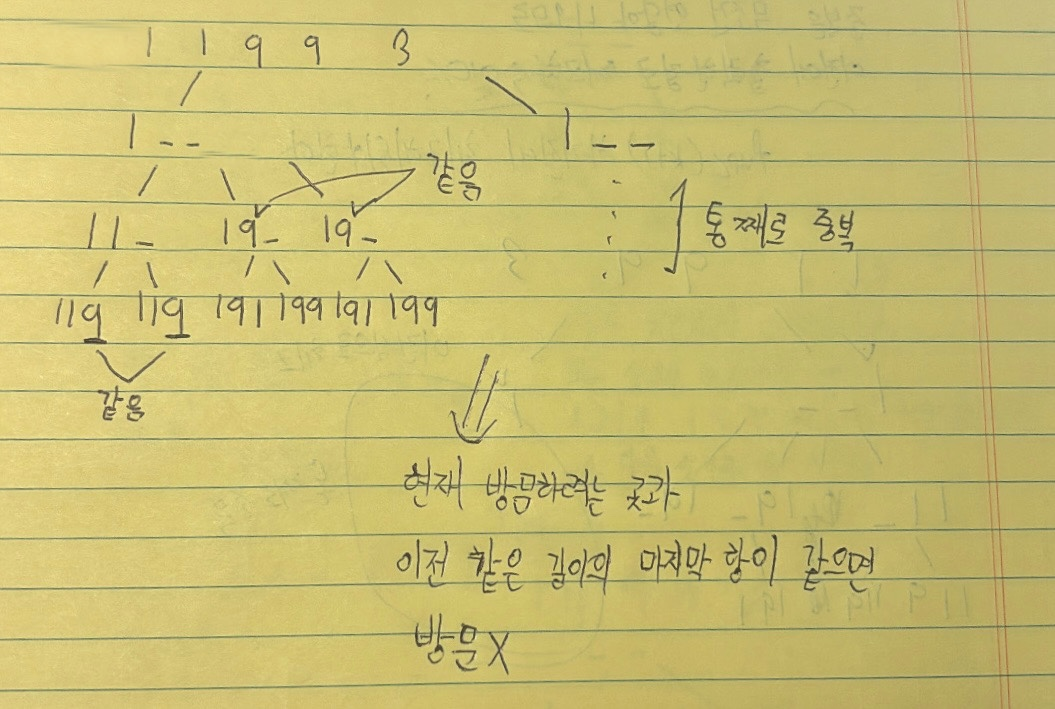 1 1 9 9 3
1 _ _ 1 _ _
같음
11 _ 19 _ 19 _ 통째로 중복
119 119 191 199 191 199
같음
현재 방문하려는 곳과
이전 같은 길이의 마지막 항이 같으면
방문X